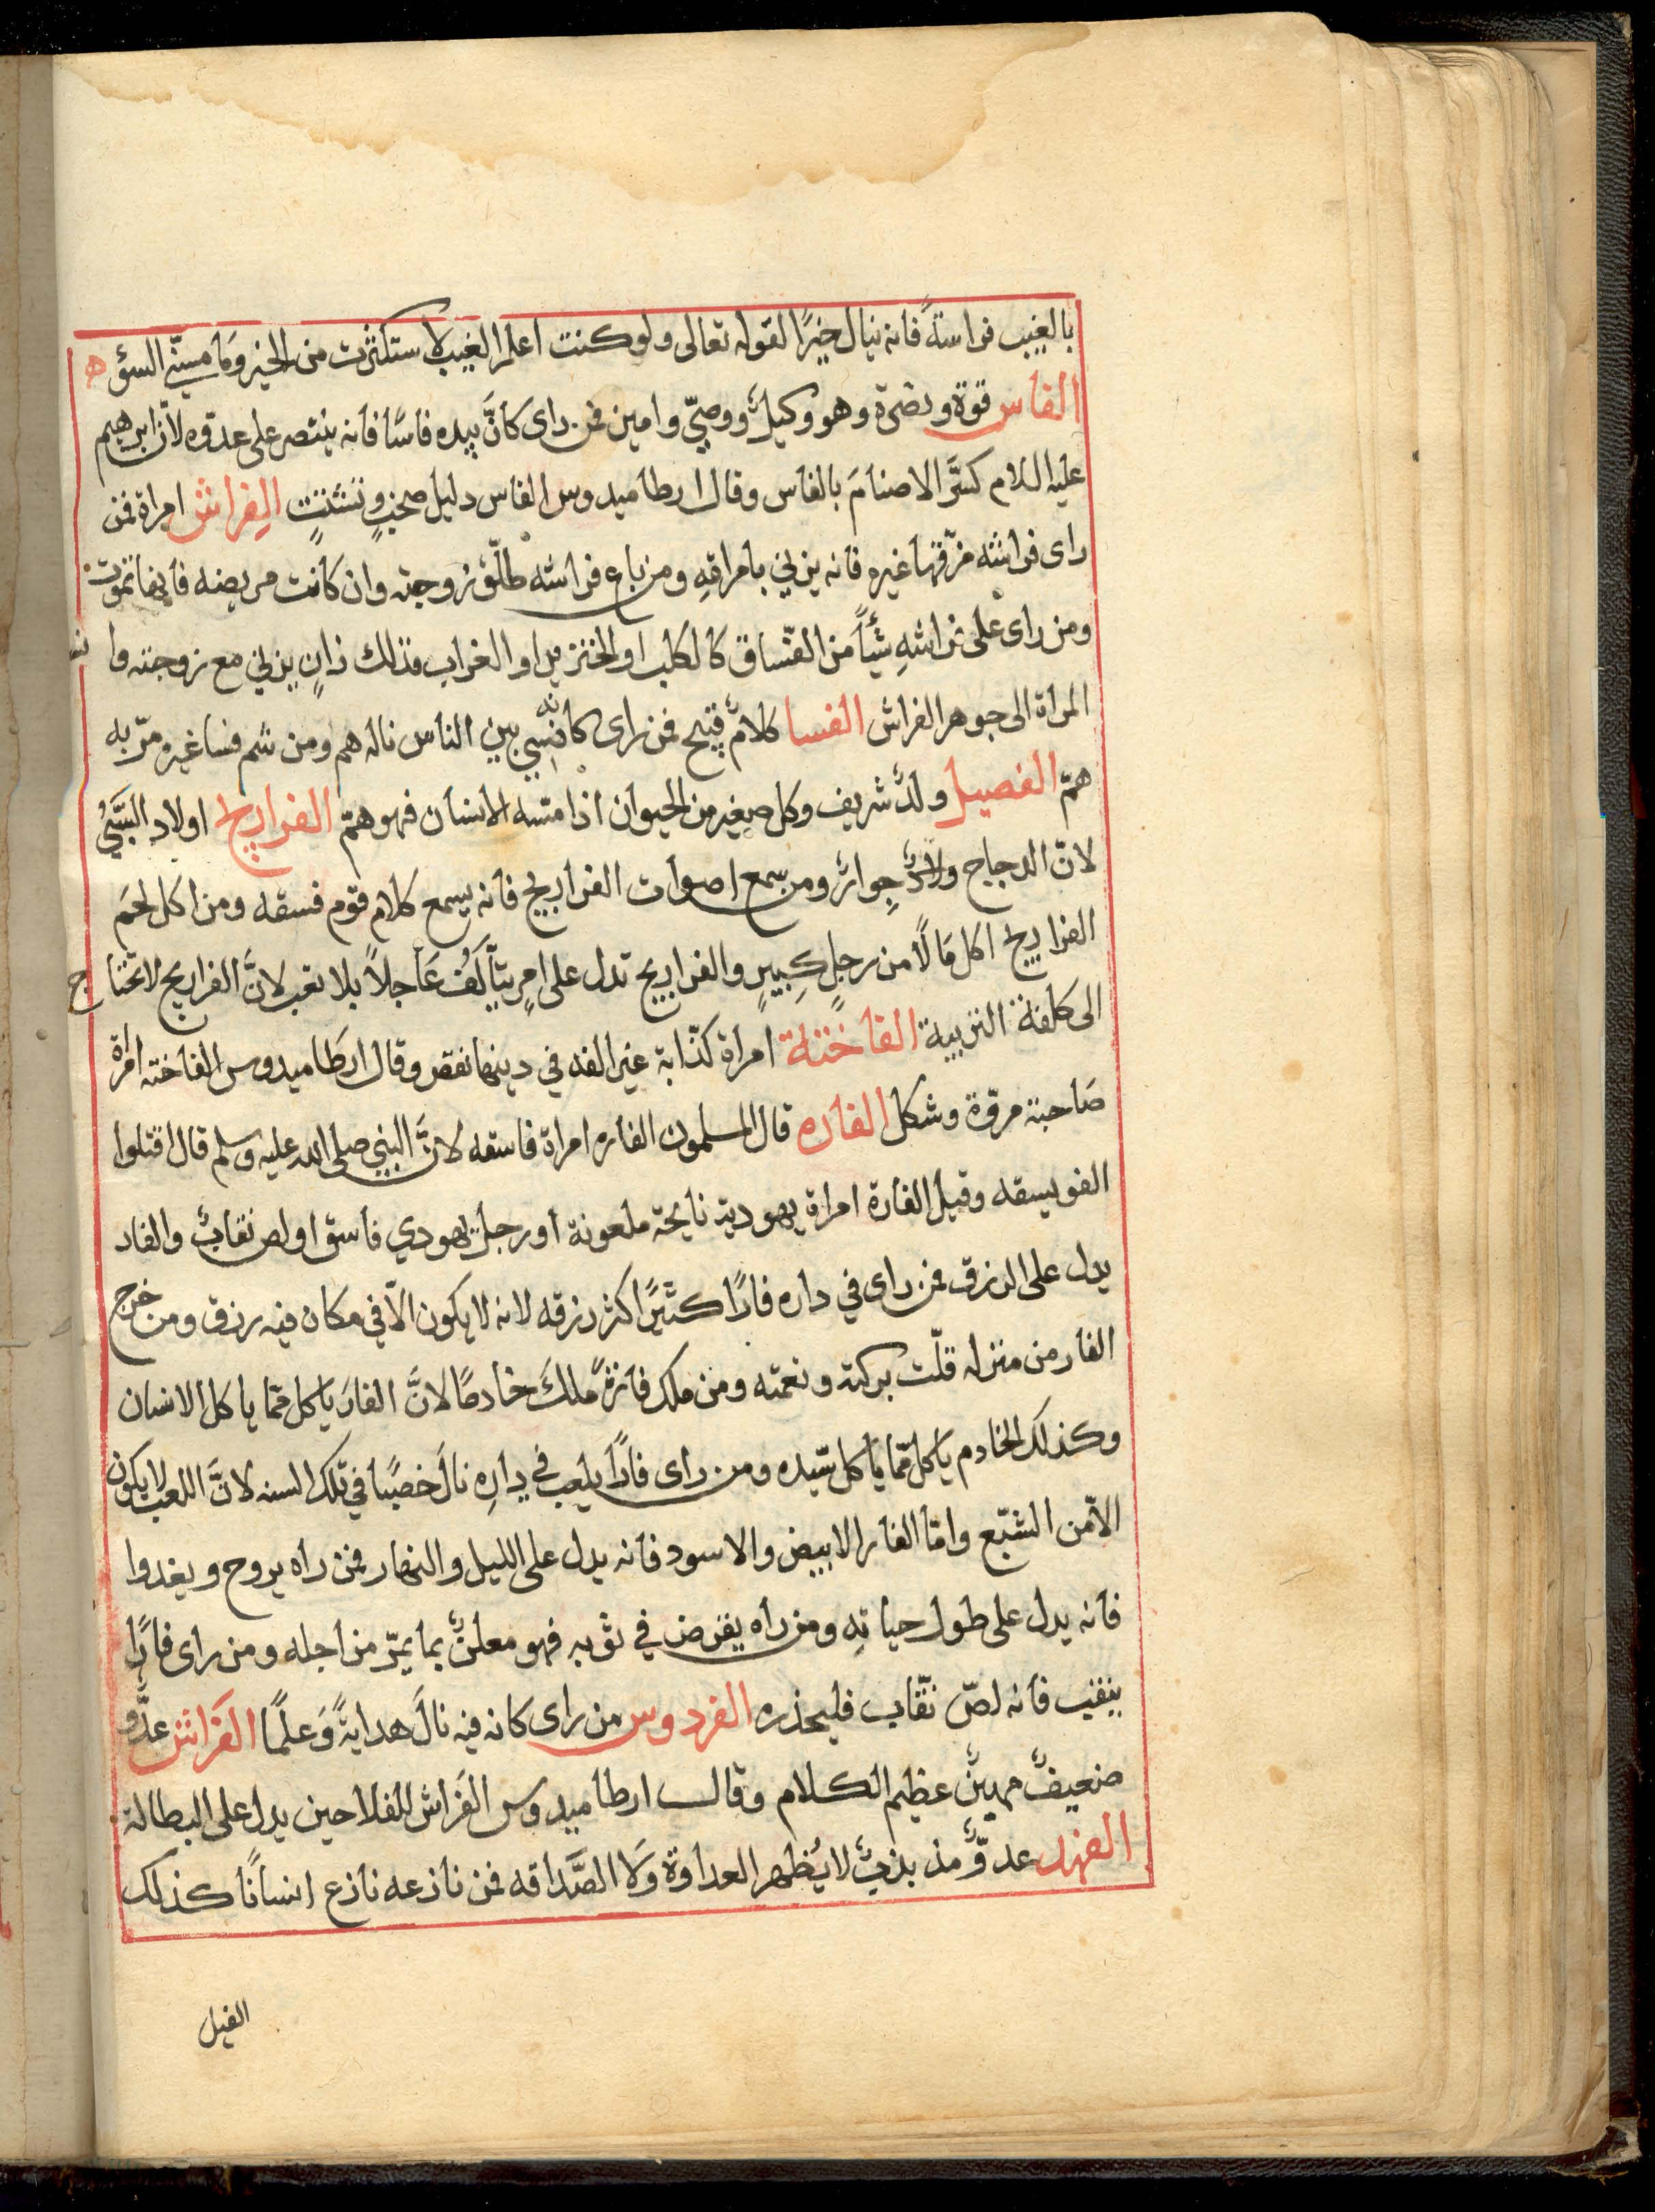 بالغيب فراسةً فانه ينال خيرًا لقوله تعالى ولو كنت اعلم الغيب لاستكثرت من الخير وَما مسنّي السؤ ه
الفاس قوة ونصرة وهو وكيلٌ ووصيّ وامين فمن راى كانَّ بيده فاسًا فانه ينتصر على عدوه لانّ ابرهيم
عليه السلام كسَّر الاصنامَ بالفاس وقال ارطاميدوس الفاس دليل صخبٍ وتشتتٍ الفِراش امراة فمن
راى فراشه مزّقها غيره فانه يزني بامراتهِ ومن باع فراشه طلّق زوجته وان كانت مريضه فانها تموت
ومن راى على فراشهِ شيأً من الفسّاق كالكلب او الخنزير او الغراب فذلك زانٍ يزني مع زوجته وا نسب
المراة الى جوهر الفراش الفسا كلامٌ قبيح فمن راى كانه فسي بين الناس ناله هم ومن شم فسا غيره مرّ به
همّ الفصيل ولدٌ شريف وكل صغير من الحيوان اذا مسّه الانسان فهو همّ الفراريج اولاد السَّبي
لانّ الدجاج ولادٌ جِوارٌ ومن سمع اصوات الفراريج فانه يسمع كلام قوم فسقه ومن اكل لحمَ
الفراريج اكل مَالًا من رجلٍ كبيرٍ والفراريج تدل على امرٍ يتألّفُ عَاجلاً بلا تعب لانَّ الفراريج لا تحتاج
الى كلفة التربية الفاختة امراة كذّابة غير الفه في دينها نقص وقال ارطاميدوس الفاخته امراة
صَاحبة مروّة وشكل الفاره قال المسلمون الفاره امراة فاسقه لانَّ النبي صلى الله عليه وسلم قال اقتلوا
الفويسقه وقيل الفارة امراة يهودية نايحة ملعونة او رجلٌ يهودي فاسق او لص نقابٌ والفار
يدل على الرزق فمن راى في داره فارًا كثيرًا كثر رزقه لانه لا يكون الّا في مكان فيه رزق ومن خرج
الفار من منزله قلّت بركته ونعمته ومن ملك فارةً ملكَ خادمًا لانَّ الفارَ ياكل ممّا ياكل الانسان
وكذلك الخادم ياكل ممّا ياكل سيّده ومن راى فارًا يلعب في دارِه نالَ خصبًا في تلك السنه لانَّ اللعب لا يكون
الّا من الشبَع وامّا الفار الابيض والاسود فانه يدل على الليل والنهار فمن راه يروح ويغدوا
فانه يدل على طول حياتِهِ ومن راه يقرض في ثوبه فهو معلنٌ بما يمرّ من اجله ومن راى فارًا
ينقب فانه لصّ نقّاب فليحذره الفردوس من راى كانه فيه نالَ هدايةً وَعلمًا الفَراش عدُّو
ضعيفٌ مهينٌ عظيم الكلام وقال ارطاميدوس الفَراش للفلاحين يدل على البطالة
الفهد عدوٌّ مذبذبٌ لا يُظهر العداوة وَلا الصَّداقه فمن نازعه نازع انسانًا كذلك
الفيل